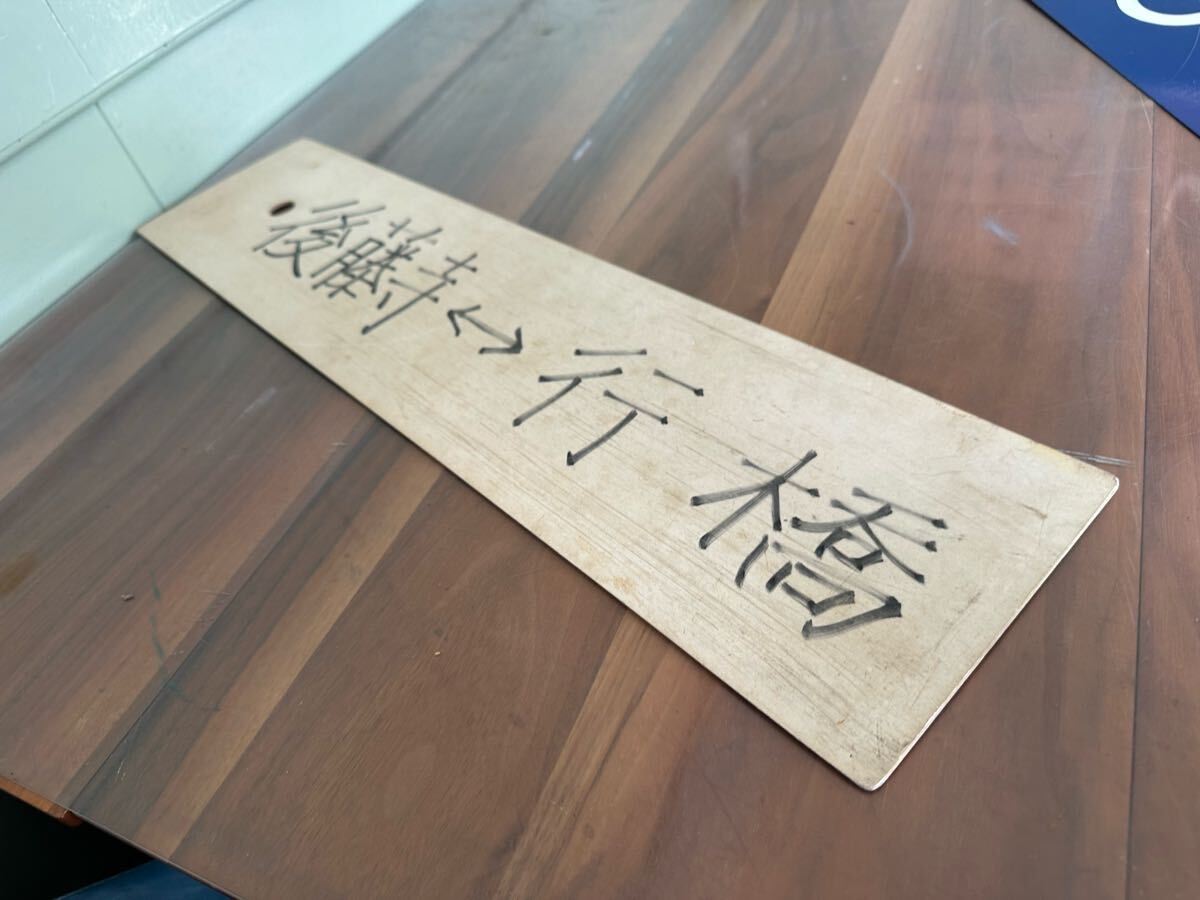 後藤寺↔行橋